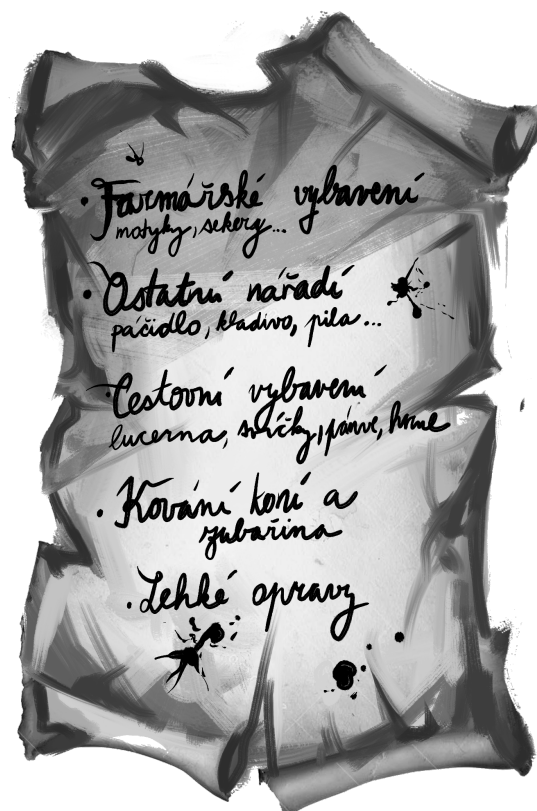 • Farmářské vybavení
motyky, sekery...
• Ostatní nářadí
páčidlo, kladivo, pila...
• Cestovní vybavení
lucerna, svíčky, pánve, hrnce
• Kování koní a
zubařina
• Lehké opravy